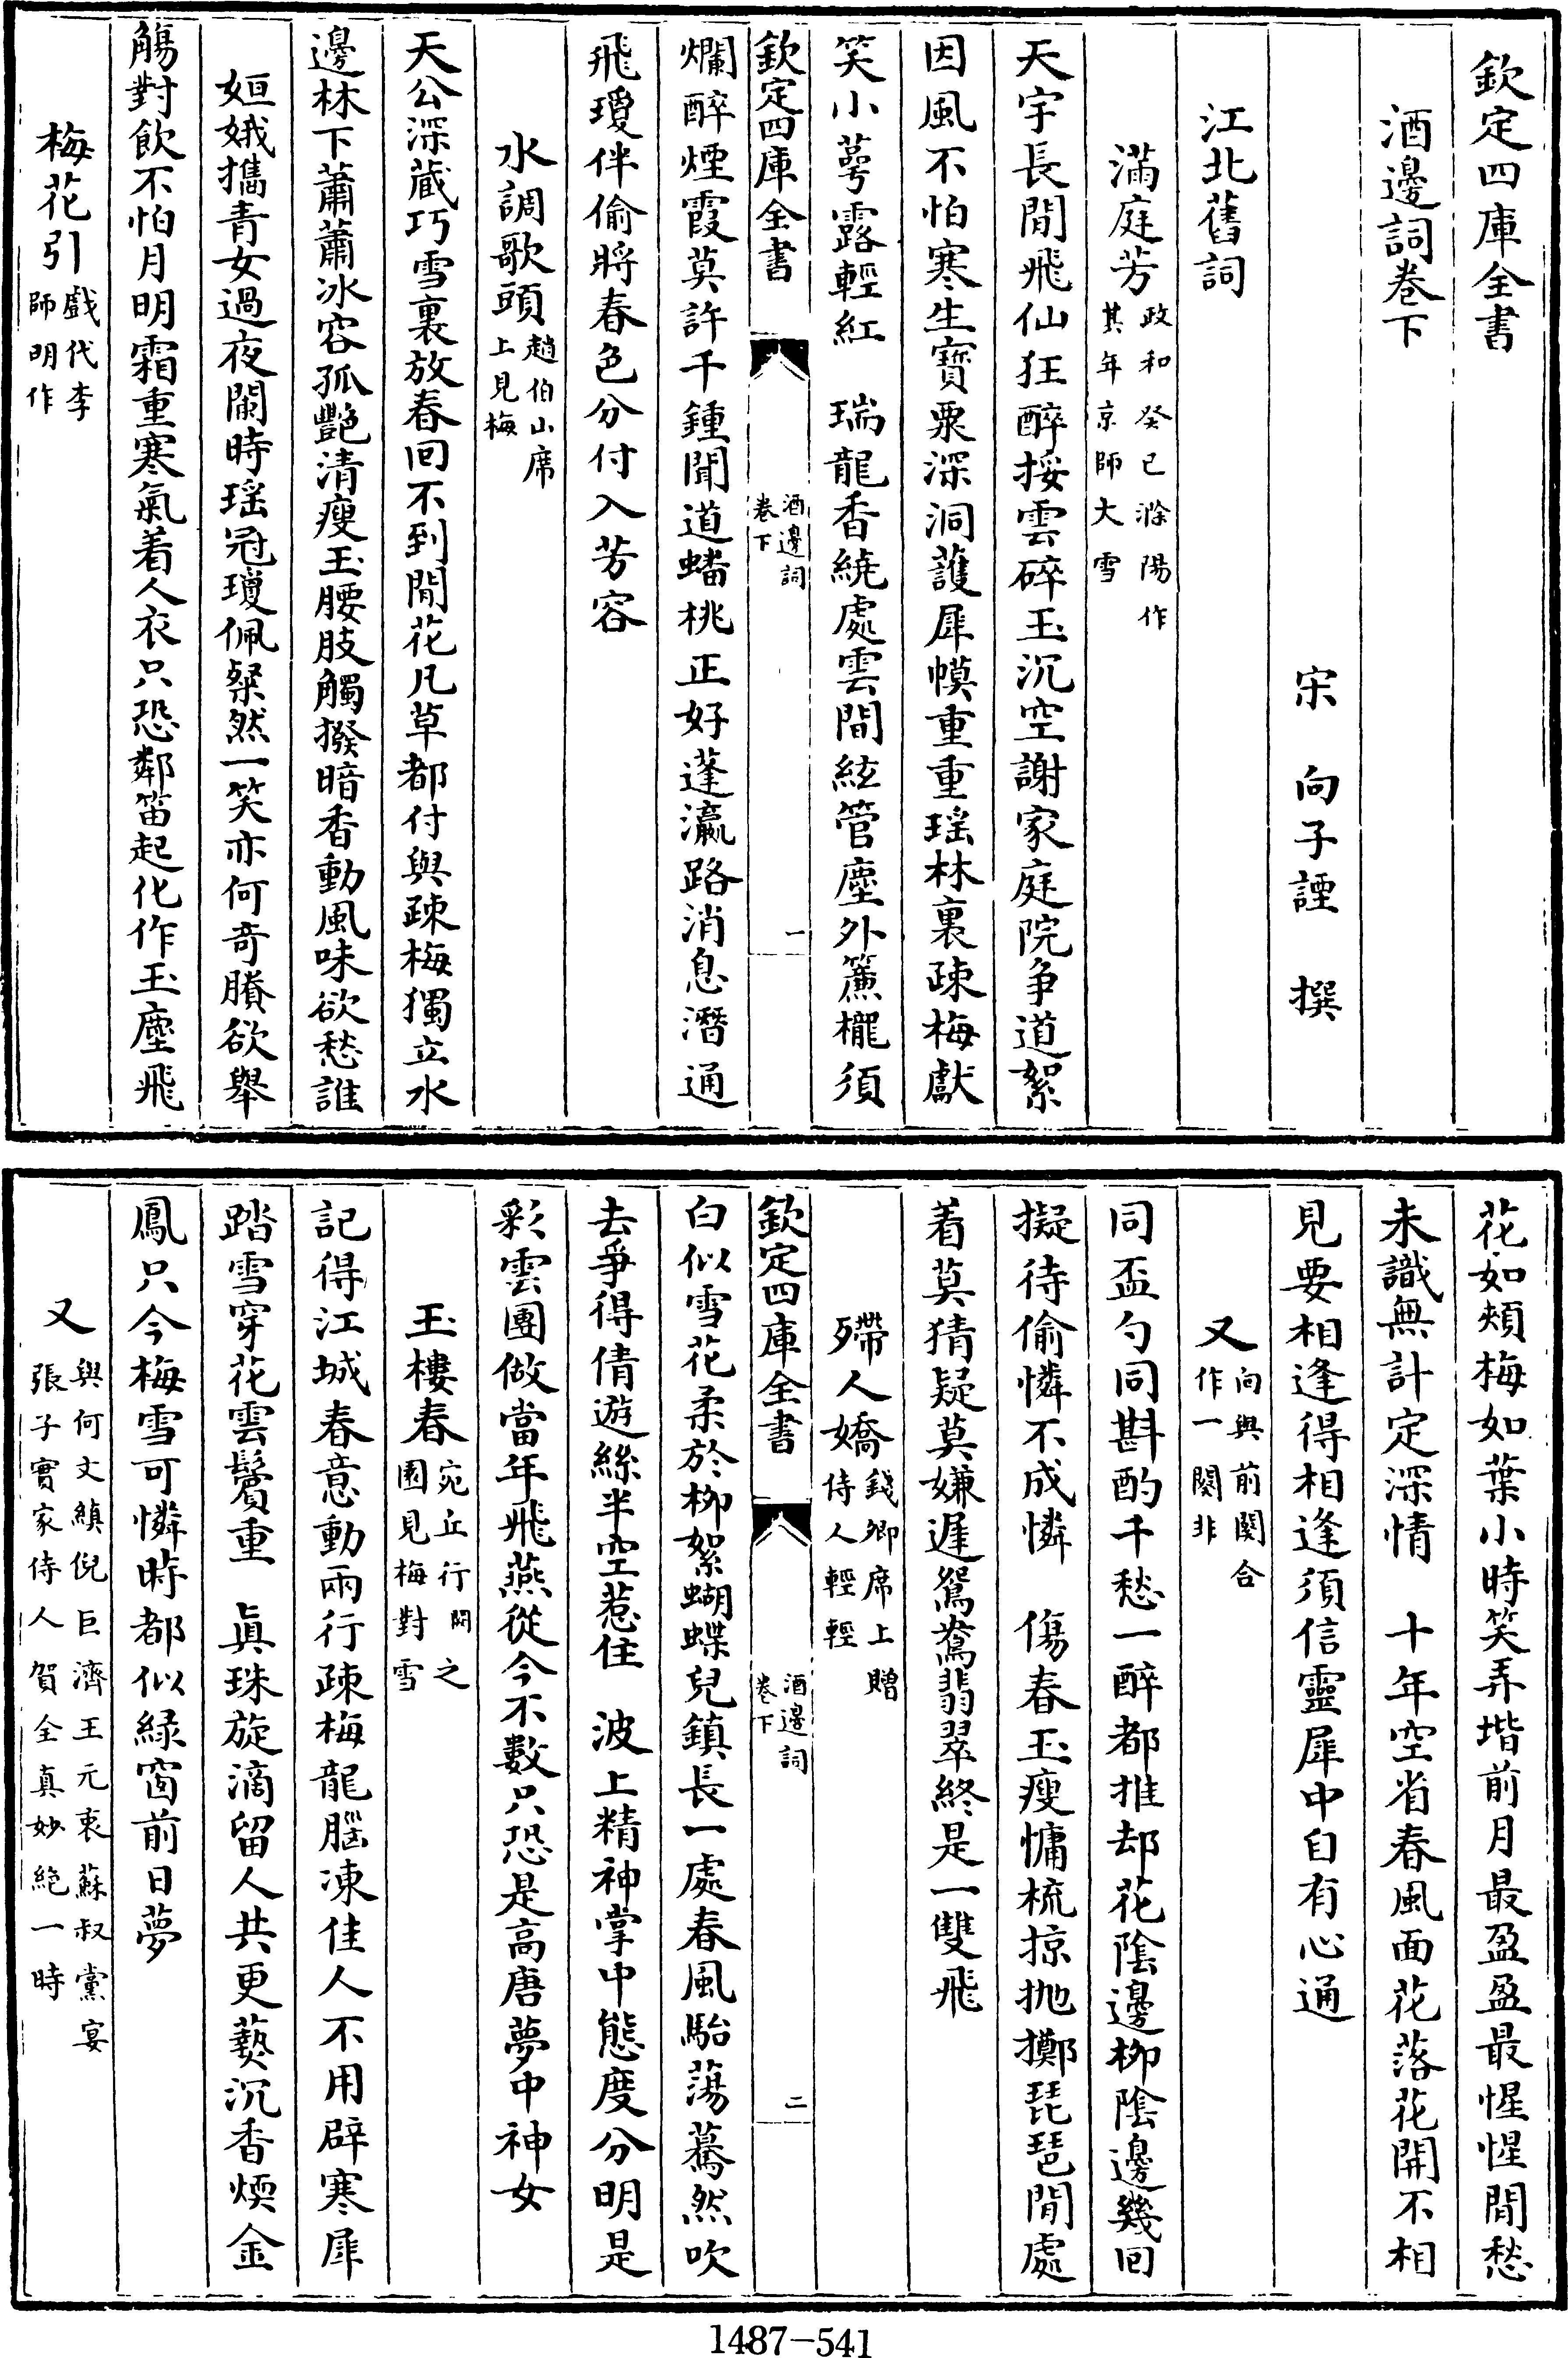 欽定四庫全書
酒邊詞卷下
宋　向子諲　撰
江北舊詞
滿庭芳政和癸巳滁陽作其年京師大雪
天宇長閒飛仙狂醉挼雲碎玉沉空謝家庭院爭道絮
因風不怕寒生寶粟深洞護犀幙重重瑶林裏疎梅獻
笑小萼露輕紅　瑞龍香繞處雲間絃管塵外簾櫳須
欽定四庫全書
酒邊詞卷下
一
爛醉煙霞莫許千鍾聞道蟠桃正好蓬瀛路消息潛通
飛瓊伴偷將春色分付入芳容
水調歌頭趙伯山席上見梅
天公深藏巧雪裏放春回不到閒花凡草都付與疎梅獨立水
邊林下蕭蕭冰容孤艷清瘦玉腰肢觸撥暗香動風味欲愁誰
姮娥攜青女過夜闌時瑶冠瓊佩粲然一笑亦何奇賸欲舉
觴對飲不怕月明霜重寒氣着人衣只恐鄰笛起化作玉塵飛
梅花引戲代李師明作
花如頰梅如葉小時笑弄堦前月最盈盈最惺惺閒愁
未識無計定深情　十年空省春風面花落花開不相
見要相逢得相逢須信靈犀中自有心通
又向與前闋合作一闋非
同盃勺同斟酌千愁一醉都推却花陰邊柳陰邊幾回
擬待偷憐不成憐　傷春玉瘦慵梳掠抛擲琵琶閒處
着莫猜疑莫嫌遲鴛鴦翡翠終是一雙飛
殢人嬌錢卿席上贈侍人輕輕
欽定四庫全書
酒邊詞卷下
二
白似雪花柔於柳絮蝴蝶兒鎮長一處春風駘蕩驀然吹
去爭得倩遊絲半空惹住　波上精神掌中態度分明是
彩雲團做當年飛燕從今不數只恐是高唐夢中神女
玉樓春宛丘行閣之園見梅對雪
記得江城春意動兩行疎梅龍腦凍佳人不用辟寒犀
踏雪穿花雲鬢重　眞珠旋滴留人共更爇沉香煗金
鳳只今梅雪可憐時都似綠窗前日夢
又與何文縝倪巨濟王元衷蘇叔黨宴張子實家侍人賀全真妙絶一時
1487—541